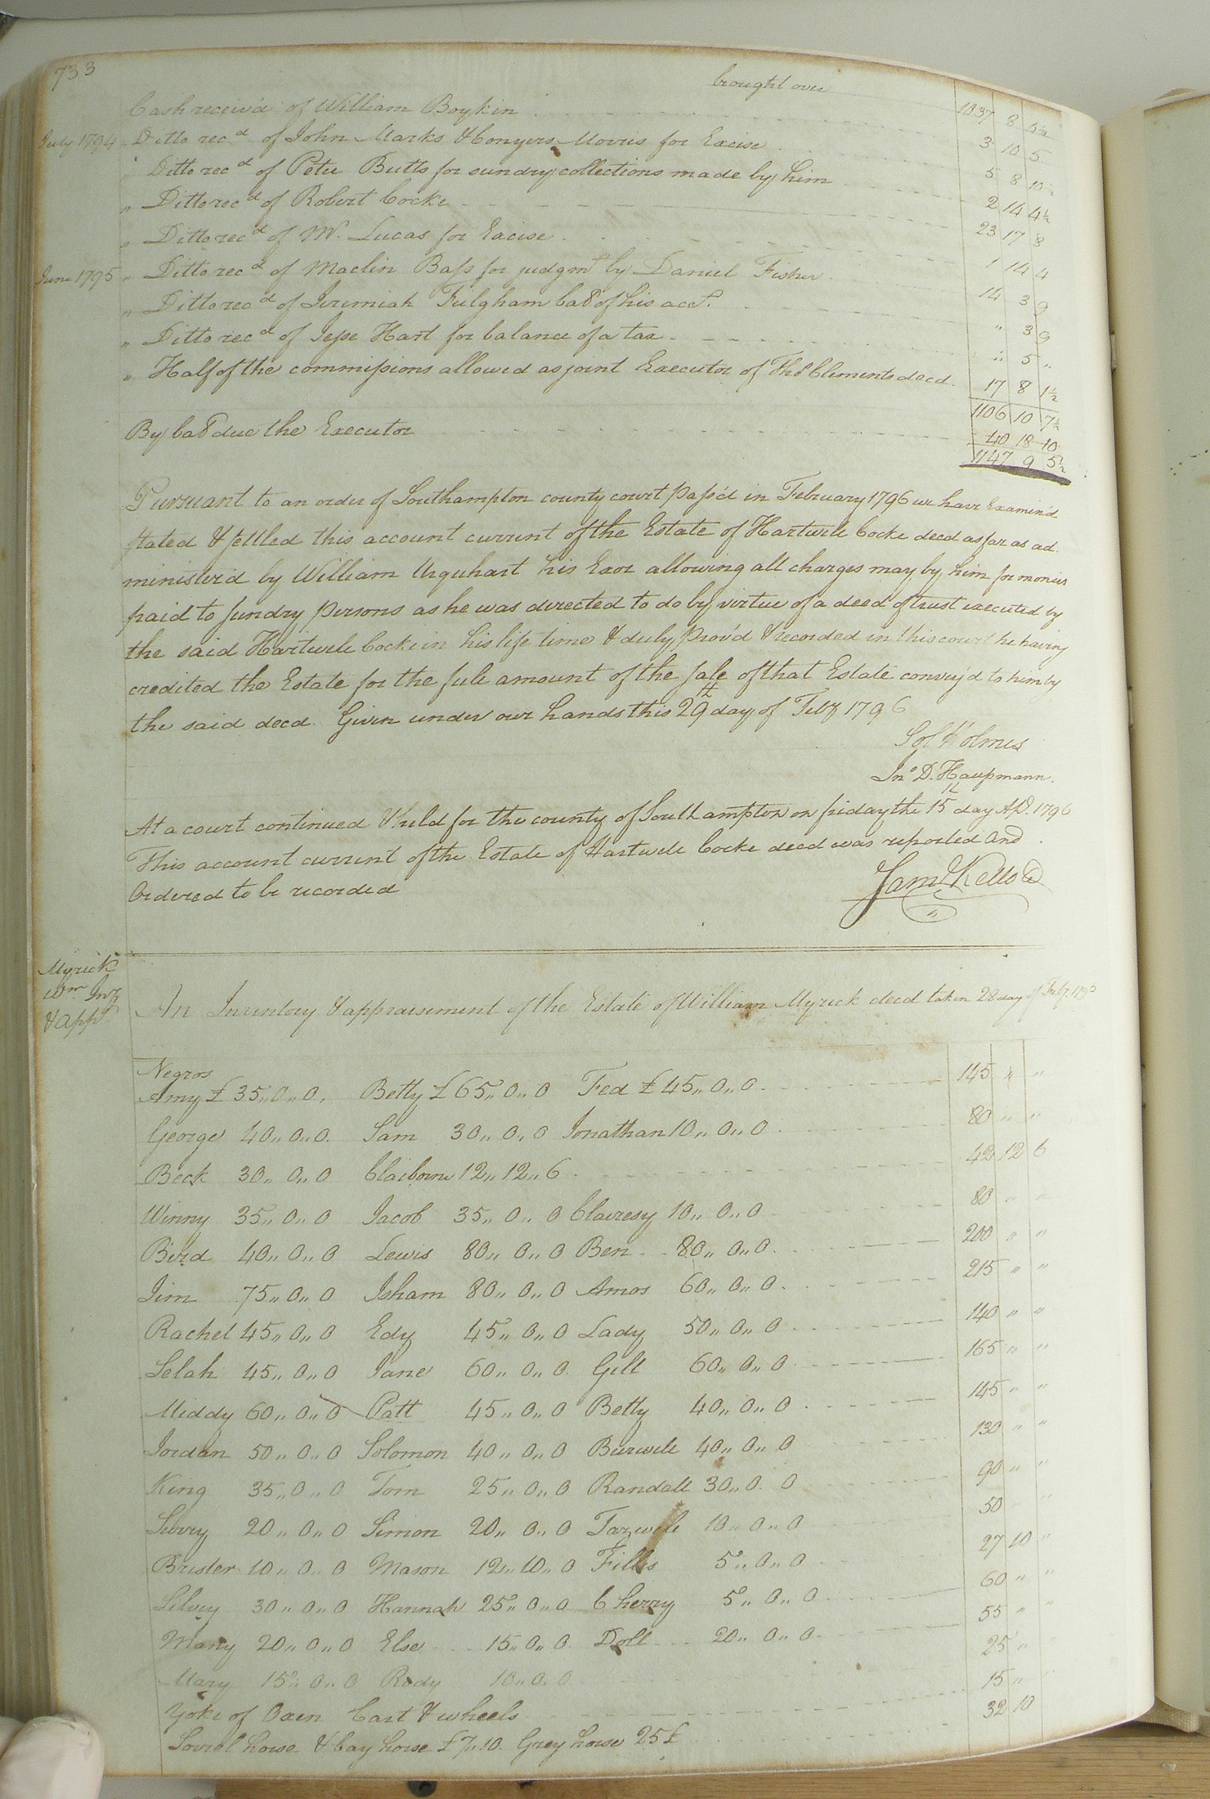 733
brought over 1037 8 5½
Cash receiv'd of William Boykin 3 10 5
July 1794 Ditto rec.d of John Marks & Conyers Morris for Excise 5 8 10½
" Ditto rec.d of Peter Butts for sundry collections made by him 2 14 4½
" Ditto rec.d of Robert Cocke 23 17 8
" Ditto rec.d of W. Lucas for Excise 1 14 4
June 1795 " Ditto rec.d of Maclin Bass for judgmt by Daniel Fisher 14 3 9
" Ditto rec.d of Jeremiah Fulgham bal. of his acct. " 3 9
" Ditto rec.d of Jesse Hart for balance of a tax " 5 "
" Half of the commissions allowed as joint Executor of Thos Clements decd. 17 8 1½
1106 10 7½
By bal due the Executor 40 18 10
1147 9 5½
Pursuant to an order of Southampton county court pass'd in February 1796 we have Examin'd
stated & settled this account current of the Estate of Hartwell Cocke decd as far as ad
minister'd by William Urquhart his Exor allowing all charges may by him for monies
paid to sundry persons as he was directed to do by virtue of a deed of trust executed by
the said Hartwell Cocke in his life time & duly prov'd & recorded in this court he having
credited the Estate for the full amount of the sale of that Estate convey'd to him by
the said decd. Given under our hands this 29th day of Feby 1796
Sol Holmes
Jno. D. Haupmann.
At a court continued & held for the county of Southampton on friday the 15th day Apl. 1796
This account current of the Estate of Hartwell Cocke dec'd was reported and
Ordered to be recorded
Saml Kello
Myrick
Wm Invy
& Appt
An Inventory & appraisement of the Estate of William Myrick decd taken 28 day of Feby
Negros
Amy £35,, 0,, 0, Betty £65,, 0,, 0 Fed £45,, 0,, 0 145 " "
George 40,, 0,, 0. Sam 30,, 0,, 0 Jonathan 10,, 0,, 0 80 " "
Beck 30,, 0,, 0 Claiborne 12,, 12,, 6 42 12 6
Winny 35,, 0,, 0 Jacob 35,, 0,, 0 Clairesy 10,, 0,, 0 80 " "
Bird 40,, 0,, 0 Lewis 80,, 0,, 0 Ben 80,, 0,, 0 200 " "
Jim 75,, 0,, 0 Isham 80,, 0,, 0 Amos 60,, 0,, 0 215 " "
Rachel 45,, 0,, 0 Edy 45,, 0,, 0 Lady 50,, 0,, 0 140 " "
Selah 45,, 0,, 0 Jane 60,, 0,, 0 Gill 60,, 0,, 0 165 " "
Middy 60,, 0,, 0 Patt 45,, 0,, 0 Betty 40,, 0,, 0 145 " "
Jordan 50,, 0,, 0 Solomon 40,, 0,, 0 Burwell 40,, 0,, 0 130 " "
King 35,, 0,, 0 Tom 25,, 0,, 0 Randall 30,, 0. 0 90 " "
20,, 0,, 0 Simon 20,, 0,, 0 Tazwell 10,, 0,, 0 50
Brister 10,, 0,, 0 Mason 12,, 10,, 0 Fillis 5,, 0,, 0 27 10 "
Silvey 30,, 0,, 0 Hannah 25,, 0,, 0 Cherry 5,, 0,, 0 60 " "
Many 20,, 0,, 0 Else 15,, 0,, 0 Doll 20,, 0,, 0 55 " "
Mary 15,, 0,, 0 Rody 10,, 0,, 0 25 "
Yoke of Oxen Cart & wheels 15 "
Sorrel horse & bay horse £7,, 10. Grey horse 25£ 32 10